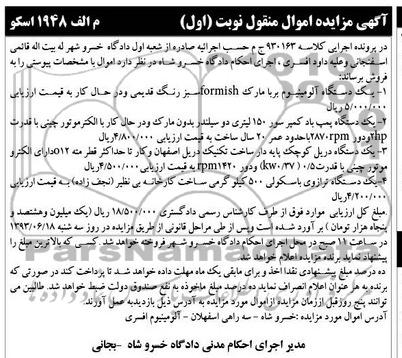 آگهی مزایده اموال منقول نوبت (اول)
م الف ۱۹۴۸ اسکو
در پرونده اجرایی کلاسه ۹۳۰۱۶۳ ج م حسب اجرائیه صادره از شعبه اول دادگاه خسرو شهر له بیت اله قائمی
اسفنجانی وعلیه داود افسری ، اجرای احکام دادگاه خسرو شاه در نظر دارد اموال با مشخصات پیوستی را به
فروش برساند:
۱- یک دستگاه آلومینیوم بربا مارک formish سبز رنگ قدیمی ودر حال کار به قیمت ارزیابی
۵/۰۰۰/۰۰۰ ریال
۲-یک دستگاه پمپ باد کمپر سور ۱۵۰ لیتری دو سیلندر بدون مارک ودر حال کار با الکتروموتور چینی با قدرت
۲hp ودور ۲۸۷۰rpm باحدود عمر ۲۰ سال ساخت به قیمت ارزیابی ۴/۸۰۰/۰۰۰ ریال
۳-یک دستگاه دریل کوچک پایه دار ساخت تکنیک دریل اصفهان وکار تا حداکثر قطر مته ۱۲ دارای الکترو
موتور چینی با قدرت ۰/۵ (۰/۳۷ kw) ودور ۱۴۲۰ rpm به قیمت ارزیابی ۴/۵۰۰/۰۰۰ ریال
۴-یک دستگاه ترازوی باسکولی ۵۰۰ کیلو گرمی ساخت کارخانه بی نظیر (نجف زاده) به قیمت ارزیابی
۴/۲۰۰/۰۰۰ ریال
.مبلغ کل ارزیابی موارد فوق از طرف کارشناس رسمی دادگستری ۱۸/۵۰۰/۰۰۰ ریال (یک میلیون وهشتصد و
پنجاه هزار تومان ) بر آورد شده است وپس از طی مراحل قانونی از طریق مزایده در روز سه شنبه ۱۳۹۳/۰۶/۱۸
در ساعت ۱۱ صبح در محل اجرای احکام دادگاه خسرو شهر فروخته خواهد شد. کسی که بالاترین مبلغ را
پیشنهاد نماید برنده مزایده اعلام خواهد شد.
ده درصد مبلغ پیشنهادی نقدا اخذ و برای مابقی یک ماه مهلت داده خواهد شد تا پرداخت کند در صورتی که
برنده به هر عنوان اعلام انصراف نماید ده درصد مبلغ ماخوذه به نفع صندوق دولت ضبط خواهد شد. طالبین می
توانند پنج روزقبل اززمان مزایده ازاموال مورد مزایده به آدرس ذیل بازدیدبه عمل آورند.
آدرس اموال مورد مزایده :خسرو شاه - سه راهی اسفهلان - آلومینیوم افسری
مدیر اجرای احکام مدنی دادگاه خسرو شاه -بجانی
ParsNamadData